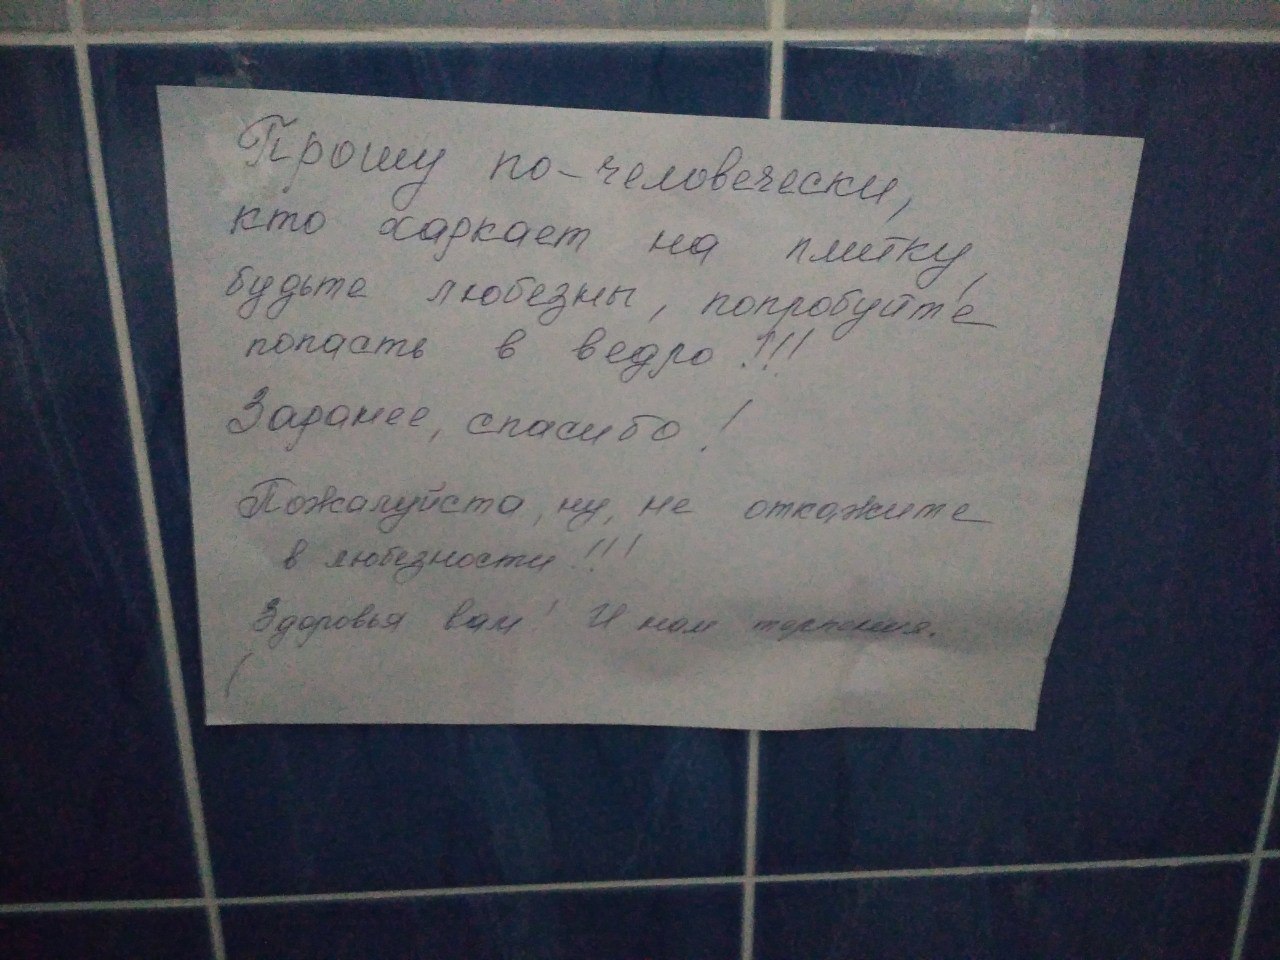 Прошу по-человечески,
кто харкает на плитку,
будьте любезны, попробуйте
попасть в ведро!!!
Заранее, спасибо!
Пожалуйста, ну, не откажите
в любезности!!!
Здоровья вам! И нам терпения.